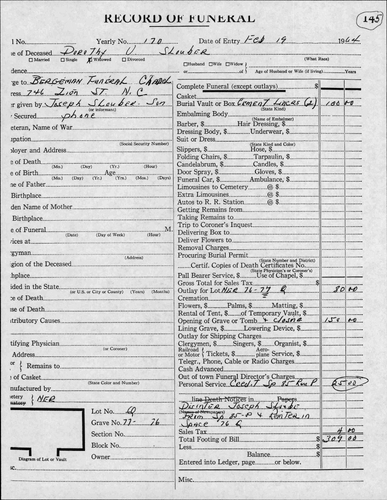 RECORD OF FUNERAL
145
l No. Yearly No. 170 Date of Entry Feb 19 1964
e of Deceased Dorothy V Slouber
Married Single Widowed Divorced Husband Wife Widow (What Race)
dence of Age of Husband or Wife (if living) Years
ge to Bergeman Funeral Chapel
ress 746 Zion St. N.C.
Complete Funeral (except outlays) $
Casket
r given by Joseph Slouber Son
(or informant)
Burial Vault or Box Cement Liners (2) 100 00
(State Kind)
Secured phone
Embalming Body
(Name of Embalmer)
eteran, Name of War
Barber, $ Hair Dressing, $
Dressing Body, $ Underwear, $
(Social Security Number)
Suit or Dress
(State Kind and Color)
oyer and Address
Slippers, $ Hose, $
Folding Chairs, $ Tarpaulin, $
e of Death
(Mo.) (Day) (Yr.) (Hour)
Candelabrum, $ Candles, $
e of Birth Age
Door Spray, $ Gloves, $
(Mo.) (Day) (Yr.) (Yrs.) (Mo.) (Days)
Funeral Car, $ Ambulance, $
e of Father
Limousines to Cemetery @ $
Birthplace
Extra Limousines @ $
Autos to R. R. Station @ $
den Name of Mother
Getting Remains from
Birthplace
Taking Remains to
Trip to Coroner's Inquest
e of Funeral M.
(Date) (Day of Week) (Hour)
Delivering Box to
ices at
Deliver Flowers to
Removal Charges
gyman
(Address)
Procuring Burial Permit
(State Number and District)
gion of the Deceased
Certif. Copies of Death Certificates No.
(State Physician's or Coroner's)
hplace
Pall Bearer Service, $ Use of Chapel, $
ided in the State
(or U.S. or City or County) (Years) (Months)
Gross Total for Sales Tax $
Outlay for Lot NER 76-77 Q 80 00
e of Death
Cremation
Flowers, $ Palms, $ Matting, $
Rental of Tent, $ of Temporary Vault, $
tributory Causes
Opening of Grave or Tomb 150 00
Lining Grave, $ Lowering Device, $
Outlay for Shipping Charges
tifying Physician
(or Coroner)
Clergymen, $ Singers, $ Organist, $
Address
Railroad or Motor Tickets, $ Aero-plane Service, $
Telegr., Phone, Cable or Radio Charges
r Remains to
Cash Advanced
e of Casket
Out of town Funeral Director's Charges
(State Color and Number)
Personal Service 25 00
nufactured by
etery NER
line Death Notices in Papers
Lot No. Q
Grave No. 77- 76
Space 76 Q
Section No.
Sales Tax 4 00
Block No.
Total Footing of Bill $ 309 00
Less
Owner
Balance $
Diagram of Lot or Vault
Entered into Ledger, page or below.
Misc.